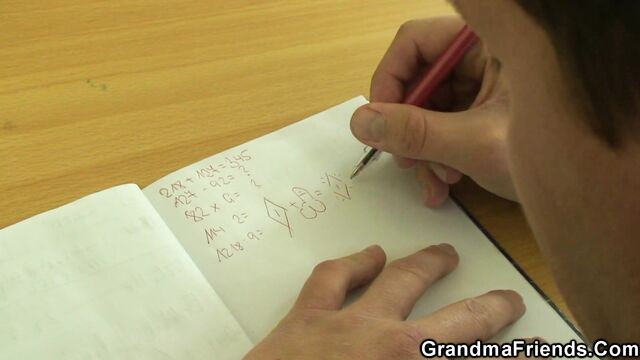 218 + 127 = 345
127 - 92 = ?
82 x 9 = ?
114 2 =
1218 . 9 =
GrandmaFriends.Com